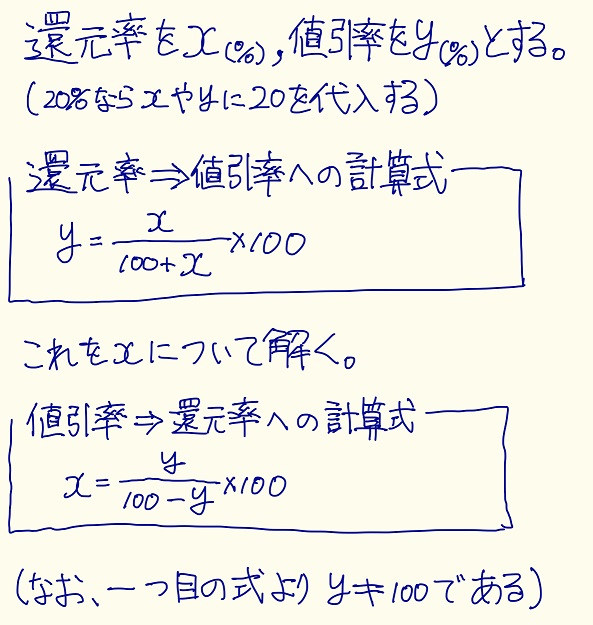 還元率をx(%),値引率をy(%)とする。
(20%ならxやyに20を代入する)
還元率⇒値引率への計算式
y = x/(100+x) ×100
これをxについて解く。
値引率⇒還元率への計算式
x = y/(100-y) ×100
(なお、一つ目の式より y≠100である)